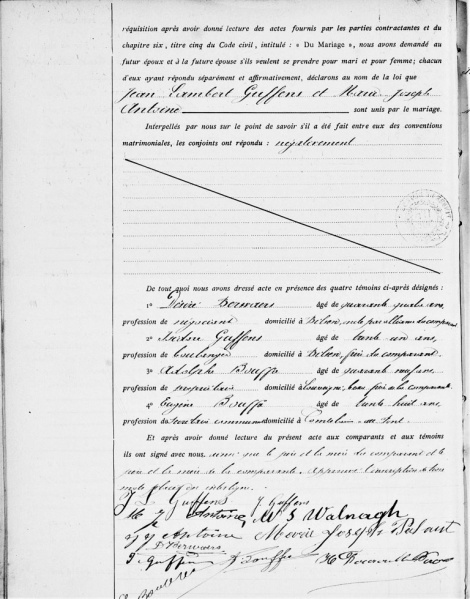 réquisition après avoir donné lecture des actes fournis par les parties contractantes et du
chapitre six, titre cinq du Code civil, intitulé : « Du Mariage », nous avons demandé au
futur époux et à la future épouse s'ils veulent se prendre pour mari et pour femme; chacun
d'eux ayant répondu séparément et affirmativement, déclarons au nom de la loi que
Jean Lambert Guffens et Marie Joseph
Antoine sont unis par le mariage.
Interpellés par nous sur le point de savoir s'il a été fait entre eux des conventions
matrimoniales, les conjoints ont répondu : négativement
De tout quoi nous avons dressé acte en présence des quatre témoins ci-après désignés :
1° Désiré âgé de quarante quatre ans,
profession de négociant domicilié à Bilsen, par alliance du comparant
2° Guffens âgé de trente un ans,
profession de boulanger domicilié à Bilsen, frère du comparant.
3° Adolphe Bouffa âgé de quarante ans,
profession de propriétaire domicilié à beau frère de la comparante
4° Eugène Bouffa âgé de trente huit ans,
profession de communal domicilié à Comblain-au-Pont.
Et après avoir donné lecture du présent acte aux comparants et aux témoins
ils ont signé avec nous, ainsi que le père et la mère du comparant et le
père et la mère de la comparante. Approuvé de trois
mots
J L Guffens J Guffens
M J Antoine W S Walnagh
J J Antoine Marie Joseph
D
Guffens A Bouffa